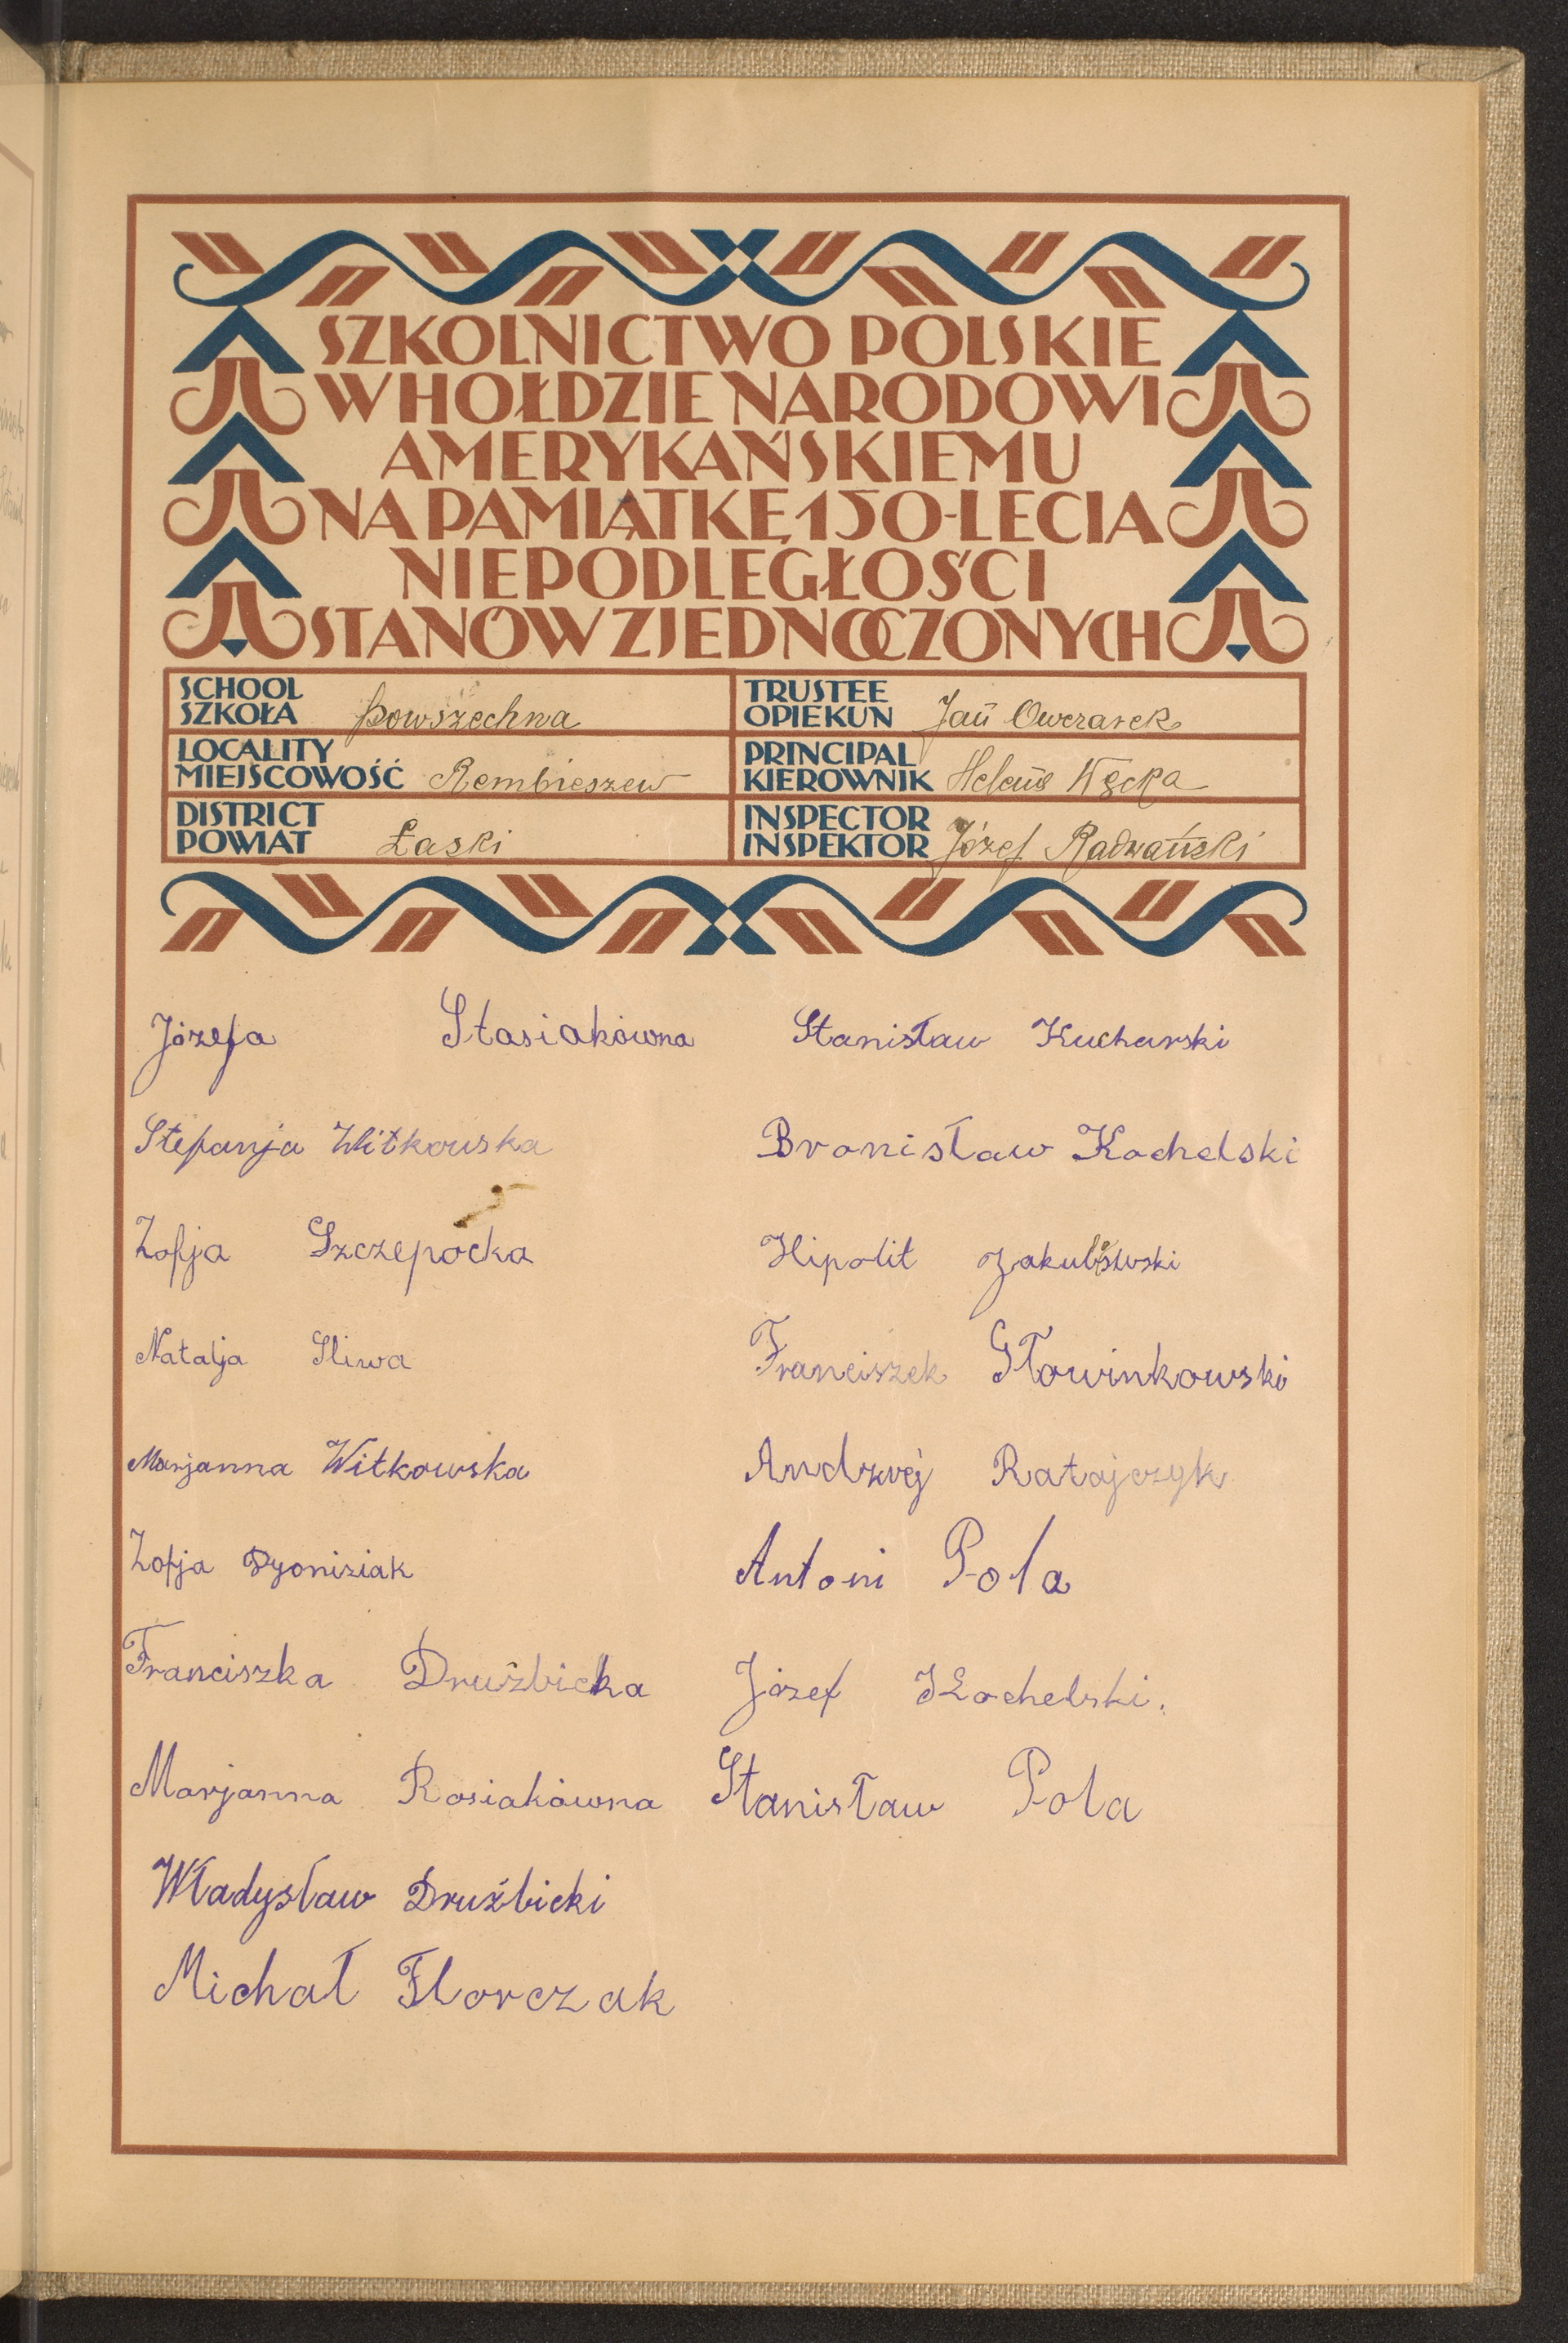 SZKOLNICTWO POLSKIE
W HOŁDZIE NARODOWI
AMERYKAŃSKIEMU
NA PAMIĄTKĘ 150-LECIA
NIEPODLEGŁOŚCI
STANÓW ZJEDNOCZONYCH
SCHOOL
SZKOŁA powszechna
TRUSTEE
OPIEKUN Jan Owczarek
LOCALITY
MIEJSCOWOŚĆ Rembieszew
PRINCIPAL
KIEROWNIK Helena Węcka
DISTRICT
POWIAT Łaski
INSPECTOR
INSPEKTOR Józef Radwański
Józefa Stasiakówna
Stefanja Witkowska
Zofja Szczepocka
Natalja Sliwa
Marjanna Witkowska
Zofja Dyonisiak
Franciszka Drużbicka
Marjanna Rosiakówna
Władysław Drużbicki
Michał Florczak
Stanisław Kucharski
Bronisław Kochelski
Hipolit Jakubowski
Franciszek Słowinkowski
Andrzej Ratajczyk
Antoni Pola
Józef Kochelski.
Stanisław Pola